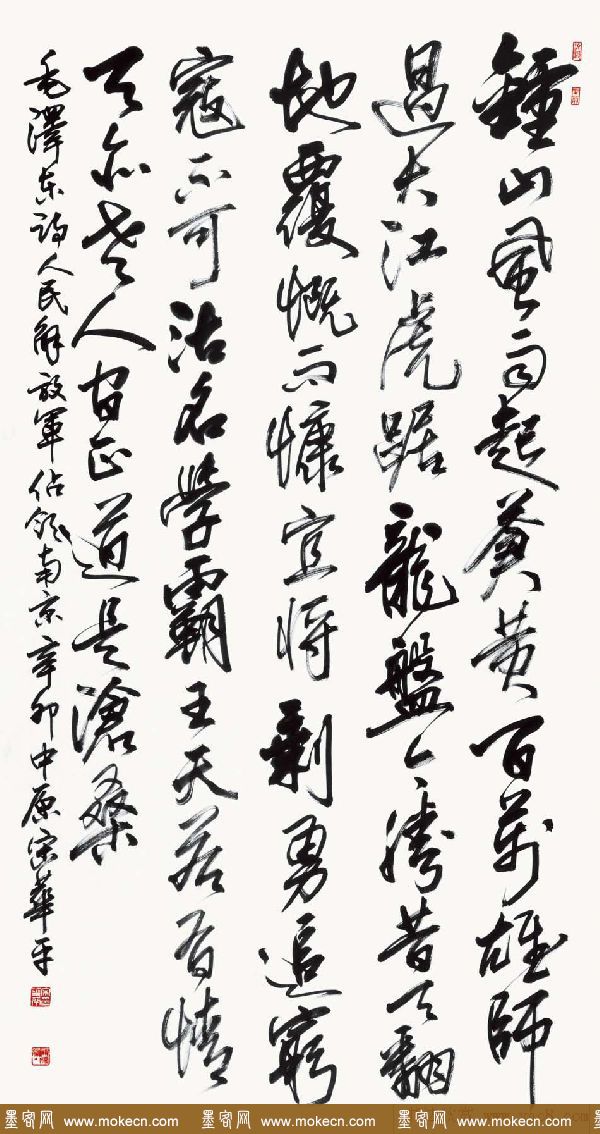 鍾山風雨起蒼黄百萬雄師
過大江虎踞龍盤今勝昔天翻
地覆慨而慷宜将剩勇追窮
寇不可沽名學霸王天若有情
天亦老人間正道是滄桑
毛澤東詩人民解放軍佔領南京辛卯中原宋華平
墨客网 www.mokecn.com 墨客网 www.mokecn.com 墨客网 www.mokecn.com 墨客网